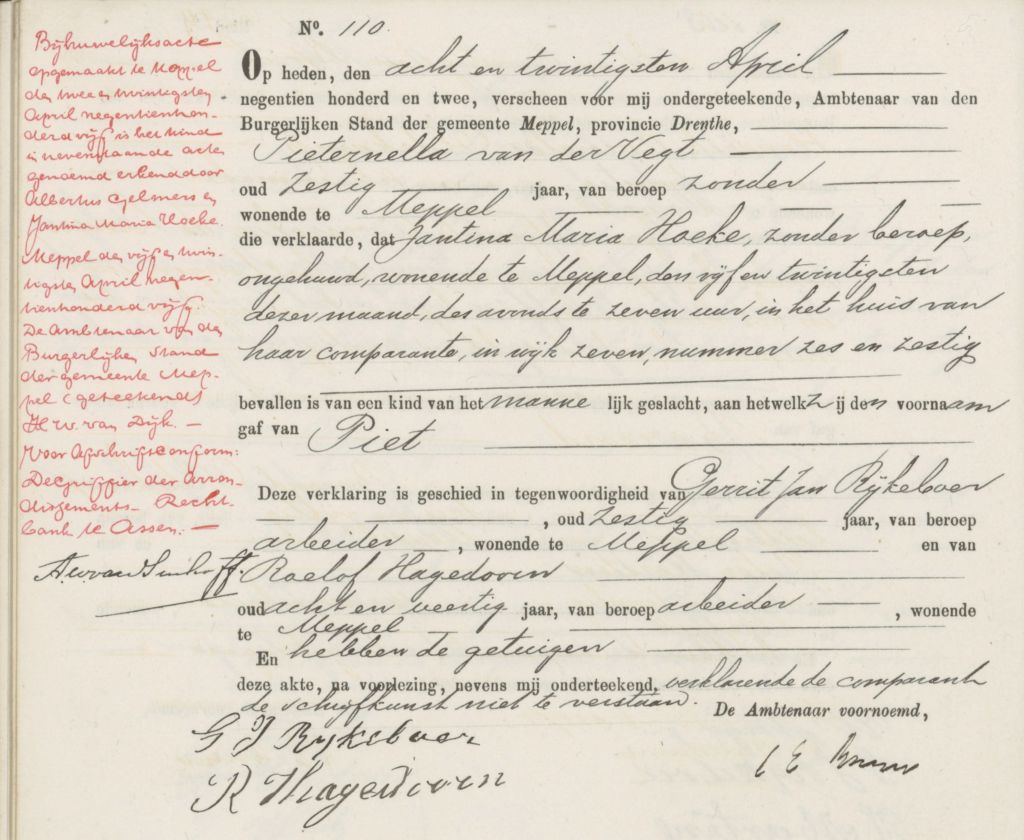 Nº. 110.
Op heden, den acht en twintigsten April
negentien honderd en twee, verscheen voor mij ondergeteekende, Ambtenaar van den
Burgerlijken Stand der gemeente Meppel, provincie Drenthe,
Pieternella van der Vegt
oud zestig jaar, van beroep zonder
wonende te Meppel
die verklaarde, dat Jantina Maria Hoeke, zonder beroep,
ongehuwd, wonende te Meppel, den vijf en twintigsten
dezer maand, des avonds te zeven uur, in het huis van
haar comparante, in wijk zeven, nummer zes en zestig
bevallen is van een kind van het manne lijk geslacht, aan hetwelk zij den voornaam
gaf van Piet
Deze verklaring is geschied in tegenwoordigheid van Gerrit Jan Rijkeboer
, oud zestig jaar, van beroep
arbeider, wonende te Meppel en van
Roelof Hagedoorn
oud acht en veertig jaar, van beroep arbeider, wonende
te Meppel
En hebben de getuigen
deze akte, na voorlezing, nevens mij onderteekend, verklarende de comparante
de schrijfkunst niet te verstaan.
De Ambtenaar voornoemd,
G J Rijkeboer
R Hagedoorn
Bij huwelijksacte
opgemaakt te Meppel
den twee en twintigsten
April negentienhon-
derd vijf is het kind
in nevenstaande acte
genoemd erkend door
Albertus Gelmers en
Jantina Maria Hoeke.
Meppel den vijf en twin-
tigsten April negen-
tienhonderd vijf.
De Ambtenaar van den
Burgerlijken Stand
der gemeente Mep-
pel (geteekend)
H. W. van Dijk. —
Voor afschrift conform:
De griffier der Arron-
dissements- Recht-
bank te Assen. —